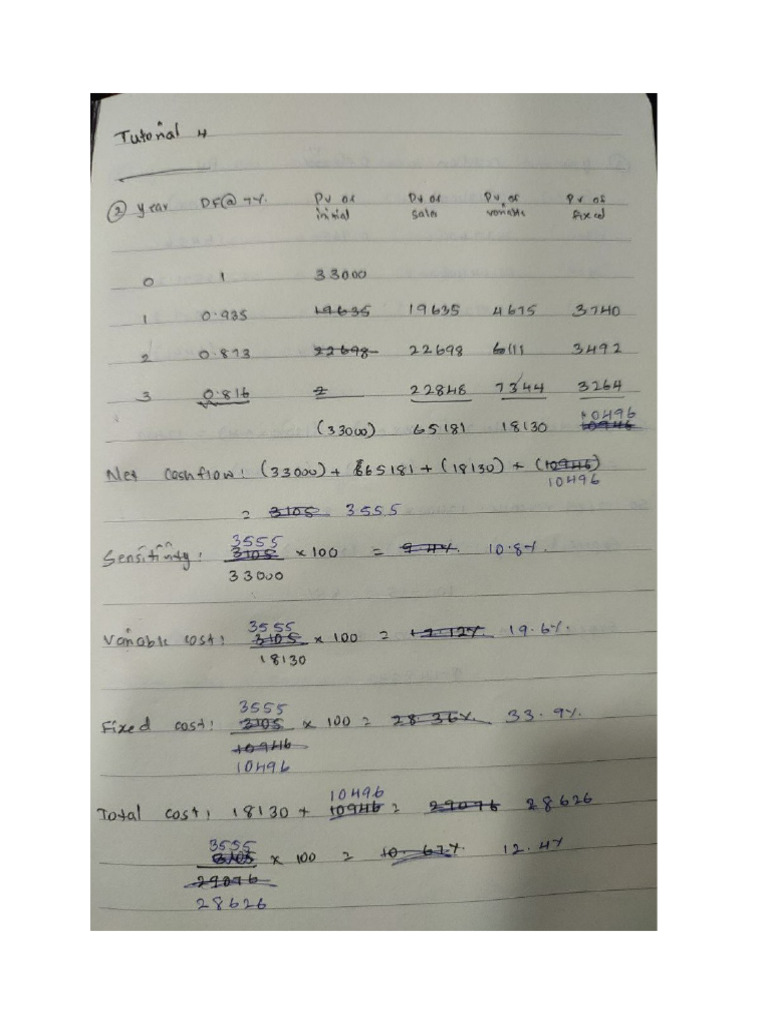 Tutorial 4
② Year DF@ 7% PV of initial PV of sales PV of variable PV of fixed
0 1 33000
1 0.935 19635 19635 4675 3740
2 0.873 22698 22698 6111 3492
3 0.816 22848 7344 3264
(33000) 65181 18130 10496 10946
Net cashflow: (33000) + 65181 + (18130) + (10946)
10496
= 3105 3555
3555
Sensitivity: 3105 × 100 = 9.4% 10.8%
33000
3555
Variable cost: 3105 × 100 = 17.12% 19.6%
18130
3555
Fixed cost: 3105 × 100 = 28.36% 33.9%
10946
10496
10496
Total cost: 18130 + 10946 = 29076 28626
3555
3105 × 100 = 10.67% 12.4%
29076
28626